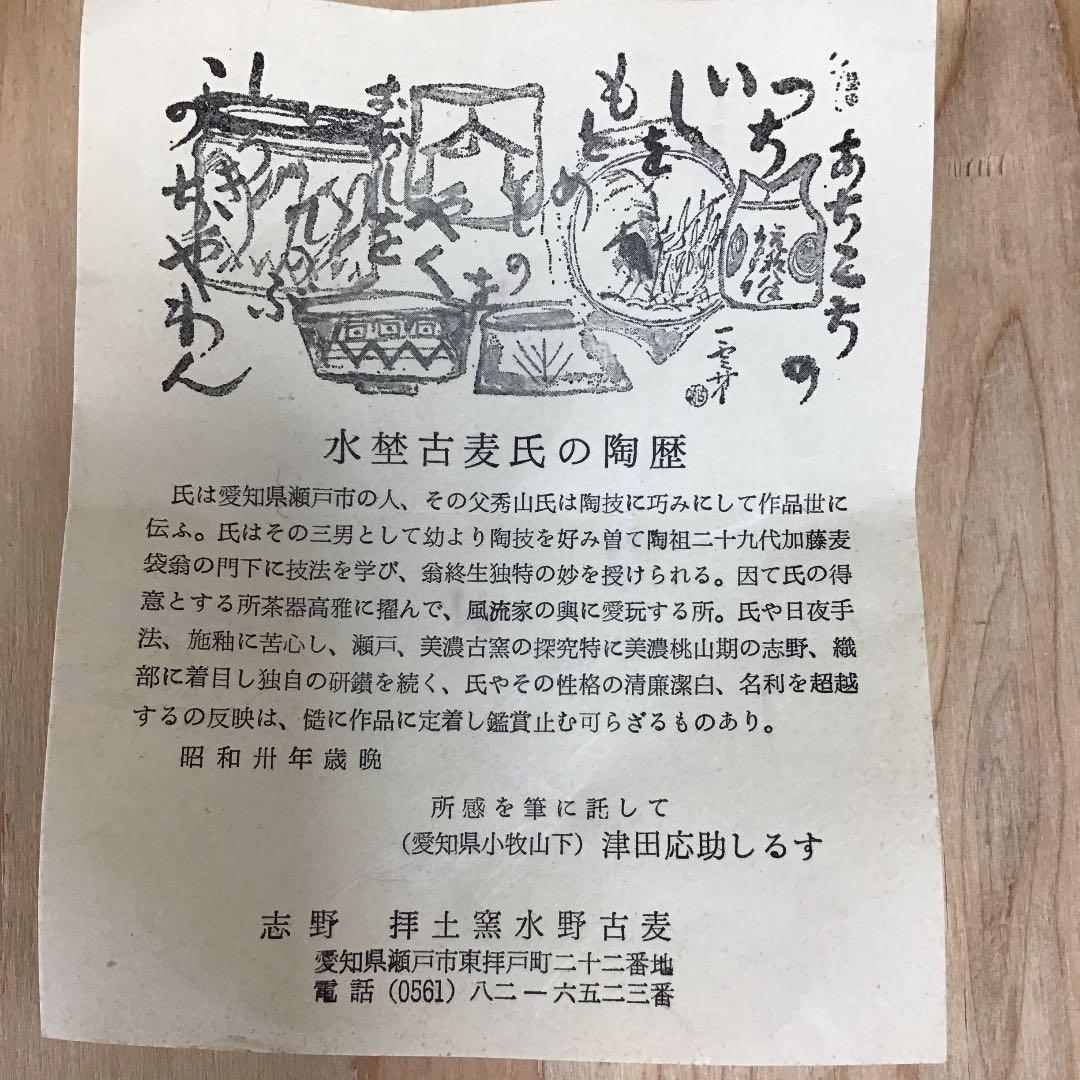 あちこちの
つち
いしを
もとめ
その
まゝ
やく
すがしを
しのぶ
こゝろの
ちやわん
水埜古麦氏の陶歴
氏は愛知県瀬戸市の人、その父秀山氏は陶技に巧みにして作品世に
伝ふ。氏はその三男として幼より陶技を好み曽て陶祖二十九代加藤麦
袋翁の門下に技法を学び、翁終生独特の妙を授けられる。因て氏の得
意とする所茶器高雅に擢んで、風流家の輿に愛玩する所。氏や日夜手
法、施釉に苦心し、瀬戸、美濃古窯の探究特に美濃桃山期の志野、織
部に着目し独自の研鑽を続く、氏やその性格の清廉潔白、名利を超越
するの反映は、慥に作品に定着し鑑賞止む可らざるものあり。
昭和卅年歳晩
所感を筆に託して
(愛知県小牧山下) 津田応助しるす
志野 拝土窯水野古麦
愛知県瀬戸市東拝戸町二十二番地
電話(0561)八二一六五二三番